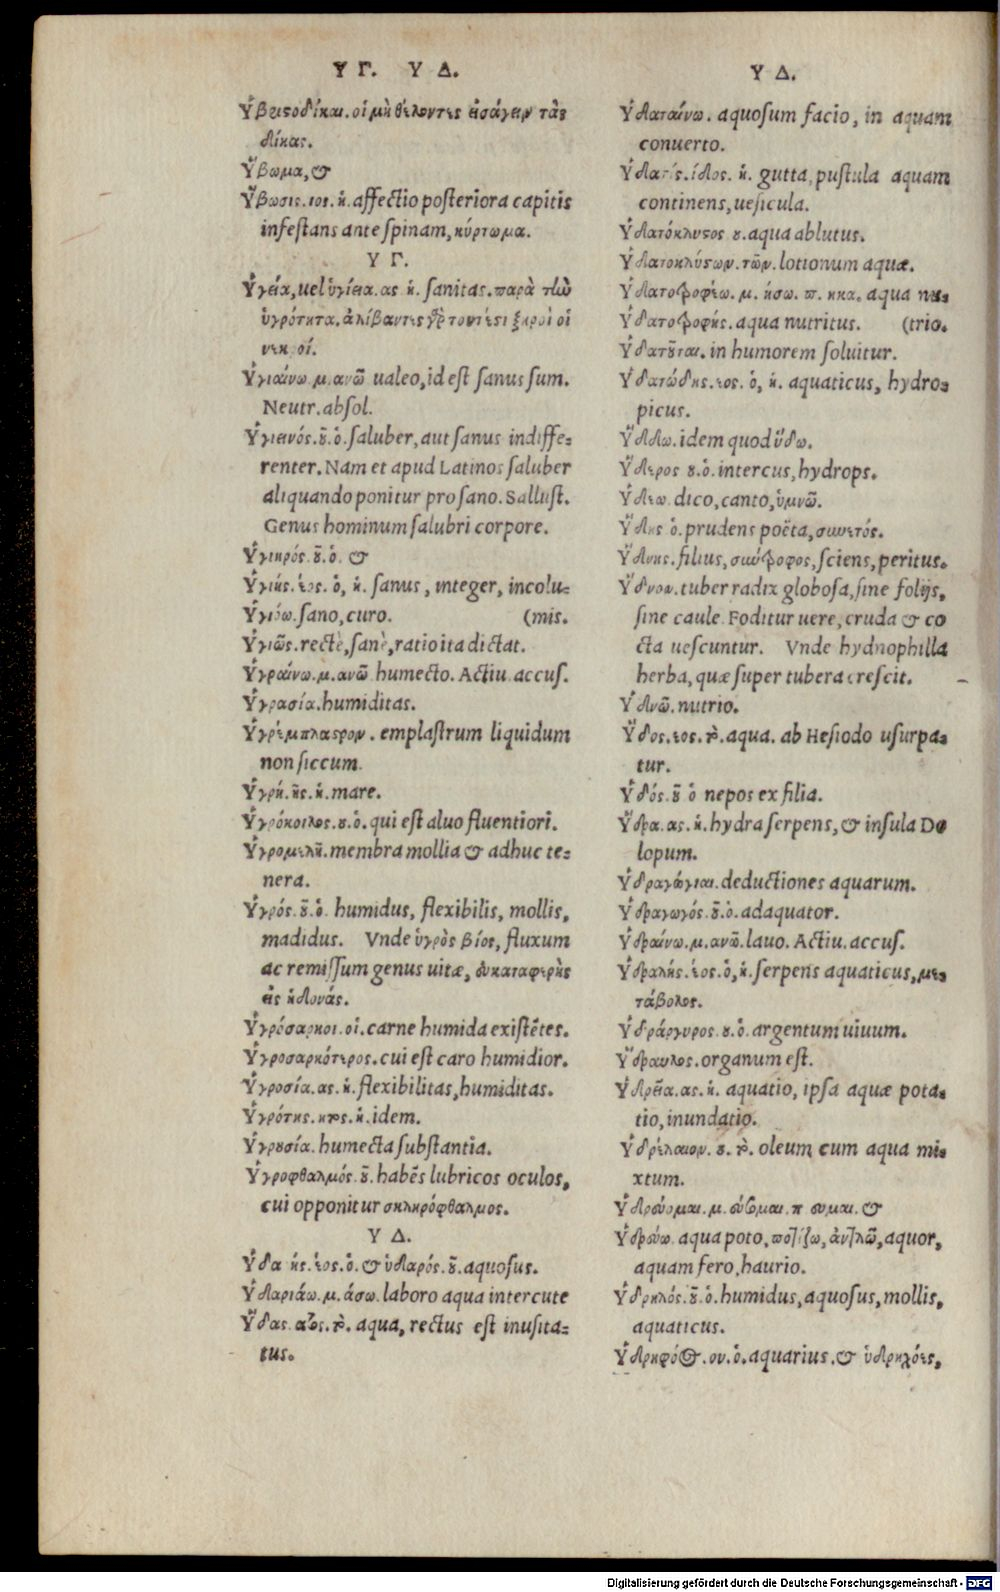 Υ Γ. Υ Δ.
Ὑβριστοδίκαι. οἱ μὴ θέλοντες εἰσάγειν τὰς
δίκας.
Ὕβωμα, &
Ὕβωσις. ιος. ἡ. affectio posteriora capitis
infestans ante spinam, κύρτωμα.
Υ Γ.
Ὑγεία, uel ὑγίεια. ας ἡ. sanitas. παρὰ τὴν
ὑγρότητα. ἀλίβαντες γὰρ τουτέστι ξηροὶ οἱ
νεκροί.
Ὑγιαίνω. μ. ανῶ ualeo, id est sanus sum.
Neutr. absol.
Ὑγιεινός. οῦ. ὁ. saluber, aut sanus indiffe-
renter. Nam et apud Latinos saluber
aliquando ponitur pro sano. Sallust.
Genus hominum salubri corpore.
Ὑγιηρός. οῦ. ὁ. &
Ὑγιής. έος. ὁ, ἡ. sanus, integer, incolu-
Ὑγιόω. sano, curo. (mis.
Ὑγιῶς. rectè, sanè, ratio ita dictat.
Ὑγραίνω. μ. ανῶ humecto. Actiu. accus.
Ὑγρασία. humiditas.
Ὑγρέμπλαστρον. emplastrum liquidum
non siccum.
Ὑγρή. ῆς. ἡ. mare.
Ὑγρόκοιλος. ου. ὁ. qui est aluo fluentiori.
Ὑγρομελῆ. membra mollia & adhuc te-
nera.
Ὑγρός. οῦ. ὁ. humidus, flexibilis, mollis,
madidus. Vnde ὑγρὸς βίος, fluxum
ac remissum genus uitæ, εὐκαταφερὴς
εἰς ἡδονάς.
Ὑγρόσαρκοι. οἱ. carne humida existẽtes.
Ὑγροσαρκότερος. cui est caro humidior.
Ὑγροσία. ας. ἡ. flexibilitas, humiditas.
Ὑγρότης. ητος. ἡ. idem.
Ὑγρουσία. humecta substantia.
Ὑγροφθαλμός. οῦ. habẽs lubricos oculos,
cui opponitur σκληρόφθαλμος.
Υ Δ.
Ὑδα ής. έος. ὁ. & ὑδαρός. οῦ. aquosus.
Ὑδαριάω. μ. άσω. laboro aqua intercute
Ὕδας. ατος. τὸ. aqua, rectus est inusita-
tus.
Υ Δ.
Ὑδαταίνω. aquosum facio, in aquam
conuerto.
Ὑδατίς. ίδος. ἡ. gutta, pustula aquam
continens, uesicula.
Ὑδατόκλυστος ου. aqua ablutus.
Ὑδατοκλύστων. τῶν. lotionum aquæ.
Ὑδατοτροφέω. μ. ήσω. π. ηκα. aqua nu-
Ὑδατοτροφής. aqua nutritus. (trio.
Ὑδατοῦται. in humorem soluitur.
Ὑδατώδης. εος. ὁ, ἡ. aquaticus, hydro-
picus.
Ὕδδω. idem quod ὕδω.
Ὕδερος ου. ὁ. intercus, hydrops.
Ὑδέω. dico, canto, ὑμνῶ.
Ὕδης ὁ. prudens poëta, συνετός.
Ὕδνης. filius, σύντροφος, sciens, peritus.
Ὕδνον. tuber radix globosa, sine folijs,
sine caule. Foditur uere, cruda & co
cta uescuntur. Vnde hydnophilla
herba, quæ super tubera crescit.
Ὑδνῶ. nutrio.
Ὕδος. εος. τὸ. aqua. ab Hesiodo usurpa-
tur.
Ὑδός. οῦ ὁ nepos ex filia.
Ὕδρα. ας. ἡ. hydra serpens, & insula Do
lopum.
Ὑδραγώγιαι. deductiones aquarum.
Ὑδραγωγός. οῦ. ὁ. adaquator.
Ὑδραίνω. μ. ανῶ. lauo. Actiu. accus.
Ὑδραλής. έος. ὁ, ἡ. serpens aquaticus, με-
τάβολος.
Ὑδράργυρος. ου. ὁ. argentum uiuum.
Ὕδραυλος. organum est.
Ὑδρεία. ας. ἡ. aquatio, ipsa aquæ pota-
tio, inundatio.
Ὑδρέλαιον. ου. τὸ. oleum cum aqua mi-
xtum.
Ὑδρεύομαι. μ. εύσομαι. π ευμαι. &
Ὑδρεύω. aqua poto, ποτίζω, ἀντλῶ, aquor,
aquam fero, haurio.
Ὑδρηλός. οῦ. ὁ. humidus, aquosus, mollis,
aquaticus.
Ὑδρηφόος. ου. ὁ. aquarius. & ὑδρηχόεις,
Digitalisierung gefördert durch die Deutsche Forschungsgemeinschaft - DFG